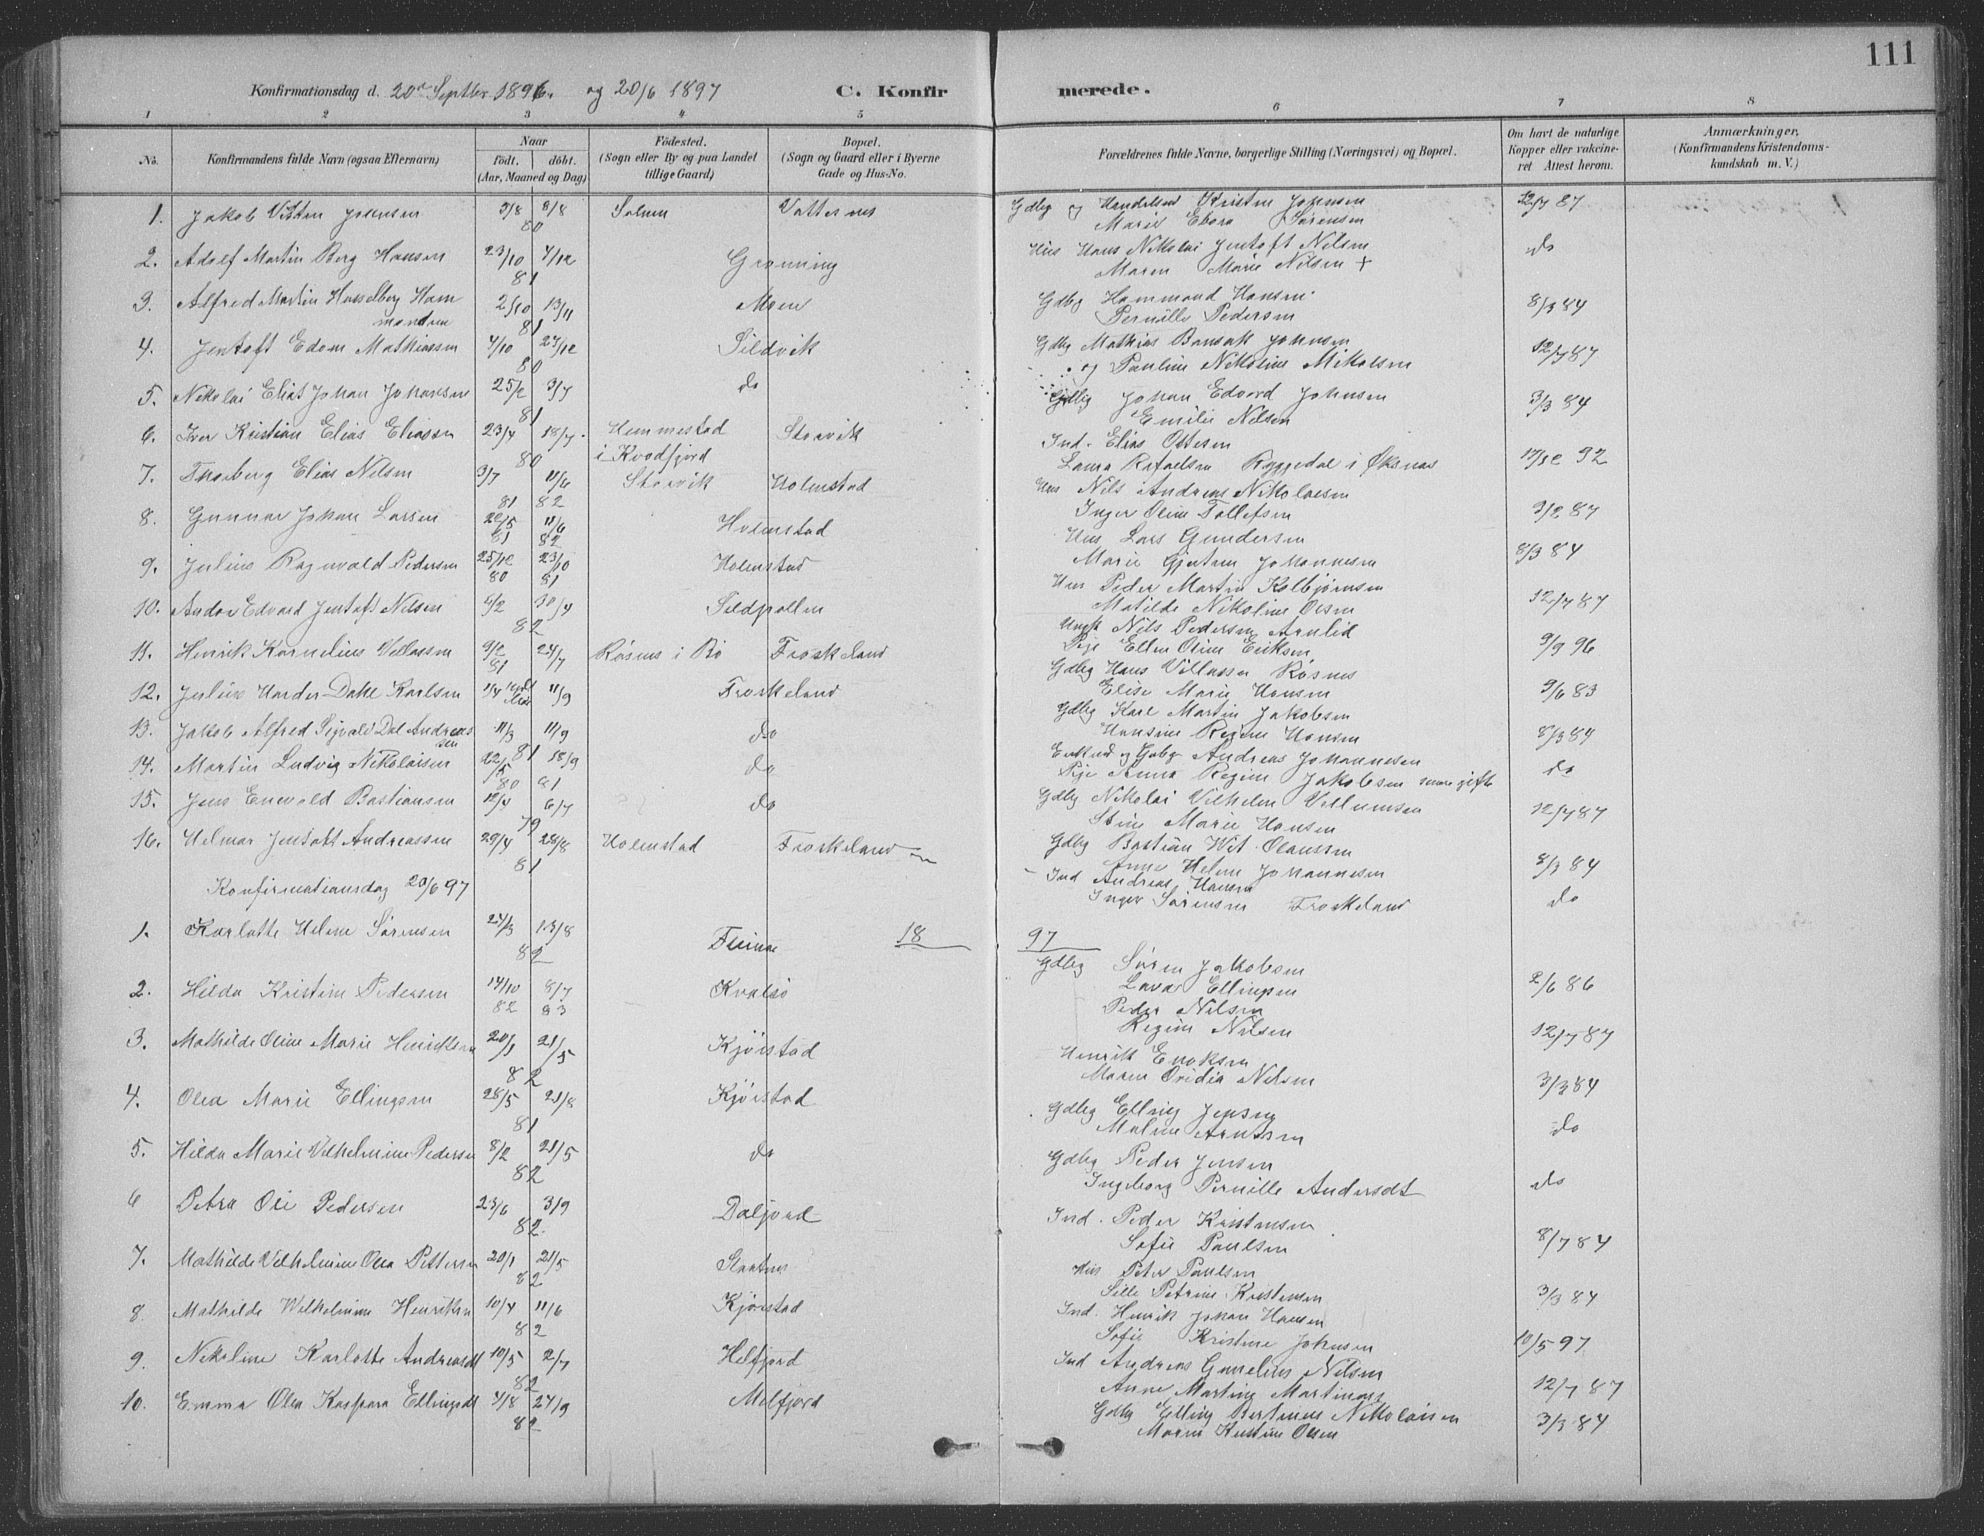 111
Konfirmationsdag d. 20de Septbr 1896. og 20/6 1897 C. Konfirmerede.
1 2 3 4 5 6 7 8
No. Konfirmandens fulde Navn (ogsaa Efternavn) Naar födt. döbt. (Aar, Maaned og Dag) Födested. (Sogn eller By og paa Landet tillige Gaard) Bopæl. (Sogn og Gaard eller i Byerne Gade og Hus-No. Forældrenes fulde Navne, borgerlige Stilling (Næringsvei) og Bopæl. Om havt de naturlige Kopper eller vakcineret Attest herom. Anmærkninger, (Konfirmandens Kristendomskundskab m. V.)
1. Jakob Jensen 3/8 80 Gdbrg og Kristen Marie Sørensen 12/7 87
2. Adolf Martin Berg Hansen 23/10 4/12 81 Grønning Hus Hans Nikolai Jentoft Nilsen Maren Marie Nilsen + do
3. Alfred Martin Hasselberg Hammondsen 2/10 13/11 81 Moen Gdbrg Hammond Hansen Pernille Pedersen 8/3 84
4. Jentoft Edom Mathiassen 4/10 27/12 80 Sildvik Gdbrg Mathias Johnsen og Pauline Nikoline Mikalsen 12/7 87
5. Nikolai Elias Johan Johansen 25/2 3/7 81 do Gdbrg Johan Edvard Johnsen Emilie Nilsen 3/3 84
6. Iver Kristian Elias Eliassen 23/4 18/7 80 Hemmestad i Kvædfjord Storvik Ind. Elias Ottesen Laura Rafaelsen i Øksnæs 92
7. Thorberg Elias Nilsen 3/7 81 11/6 82 Storvik Holmstad Hus Nils Andreas Nikolaisen Inger Oline Tollefsen 3/2 87
8. Gunnar Johan Larsen 22/5 81 11/6 82 Holmstad Hus Lars Gundersen Marie Johannesen 8/3 84
9. Julius Ragnvald Pedersen 25/12 80 23/10 81 Holmstad Hus Peder Martin Kolbjørnsen Matilde Nikoline Olsen 12/7 87
10. Andor Edvard Jentoft Nilsen 5/2 30/4 82 Sildpollen Nils Pedersen Pige Ellen Oline Eriksen 9/9 96
11. Henrik Kornelius Villassen 9/2 81 24/7 Røsnes i Bø Froskeland Gdbrg Hans Villassen Røsnes Elise Marie Hansen 9/6 83
12. Julius Harder Dahl Karlsen 11/4 11/9 Froskeland Gdbrg Karl Martin Jakobsen Hansine Regine Hansen 8/3 84
13. Jakob Alfred Sigvald Dal Andreassen 11/3 11/9 81 do Enkem og Gdbr Andreas Johannesen Pige Anna Regine Jakobsen do
14. Martin Ludvig Nikolaisen 22/5 80 18/9 81 do Gdbrg Nikolai Vilhelm Villumsen Stine Marie Hansen 12/7 87
15. Jens Enevald Bastiansen 12/3 6/7 79 do Gdbrg Bastian Wit Olaussen Anne Helene Johannesen 8/3 84
16. Helmar Jentoft Andreassen 29/4 28/8 81 Holmstad Froskeland Ind Andreas Hansen Inger Sørensen Froskeland do
Konfirmationsdag 20/6 97
18 97
1. Karlotte Helene Sørensen 24/3 13/8 82 Gdbrg Søren Jakobsen Ellingsen 2/6 86
2. Hilda Kristine Pedersen 14/10 82 8/7 83 Kvalsø Peder Nilsen Regine Nilsen 12/7 87
3. Mathilde Oline Marie Henriksen 20/1 21/5 82 Kjørstad Henrik Enoksen Maren Nilsen 3/3 84
4. Olea Marie Ellingsen 28/5 21/8 81 Kjørstad Gdbrg Elling Jensen Maline do
5. Hilda Marie Vilhelmine Pedersen 8/2 21/5 82 do Gdbrg Peder Jensen Ingeborg Pernille Andersdt do
6 Petra Pedersen 23/6 3/9 82 Daljord Ind. Peder Kristensen Sofie Paulsen 8/7 84
7. Mathilde Vilhelmine Olea Pettersen 20/1 21/5 82 Hus Peter Paulsen Sille Petrine Kristensen 3/3 84
8. Mathilde Wilhelmine Henriksen 10/4 11/6 82 Kjørstad Ind. Henrik Johan Hansen Sofie Kristine Johnsen 10/5 97
9. Nikoline Karlotte Andreasdt 10/5 2/7 82 Melfjord Ind Andreas Nilsen Anne Martine 12/7 87
10. Emma Olea Kaspara Ellingsdt 4/8 24/9 82 Melfjord Gdbrg Elling Bertinus Nikolaisen Maren Kristine Olsen 3/3 84